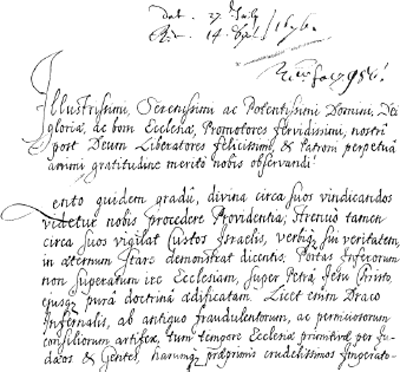 dat. 27 July
14. 1676.
Illustrissimi, Serenissimi ac Potentissimi Domini, Dei
gloriæ, ac boni Ecclesiæ, Promotores fervidissimi, nostri
post Deum Liberatores felicissimi, et Patroni perpetuâ
animi gratitudine meritò nobis observandi!
Lento quidem gradu, divina circa suos vindicandos
videtur nobis procedere Providentia; strenuò tamen
circa suos vigilat Custos Israelis, verbiq; sui veritatem,
in æternum stare demonstrat dicentis: Portas Inferorum
non superaturas Ecclesiam, super Petrâ Jesu Christo,
ejusq; purâ doctrinâ ædificatam. Licet enim Draco
Infernalis, ab antiquo fraudulentorum, ac perniciosorum
consiliorum artifex, tum tempore Ecclesiæ primitivæ per Ju-
dæos et Gentes, harumq; præprimis crudelissimos Imperato-